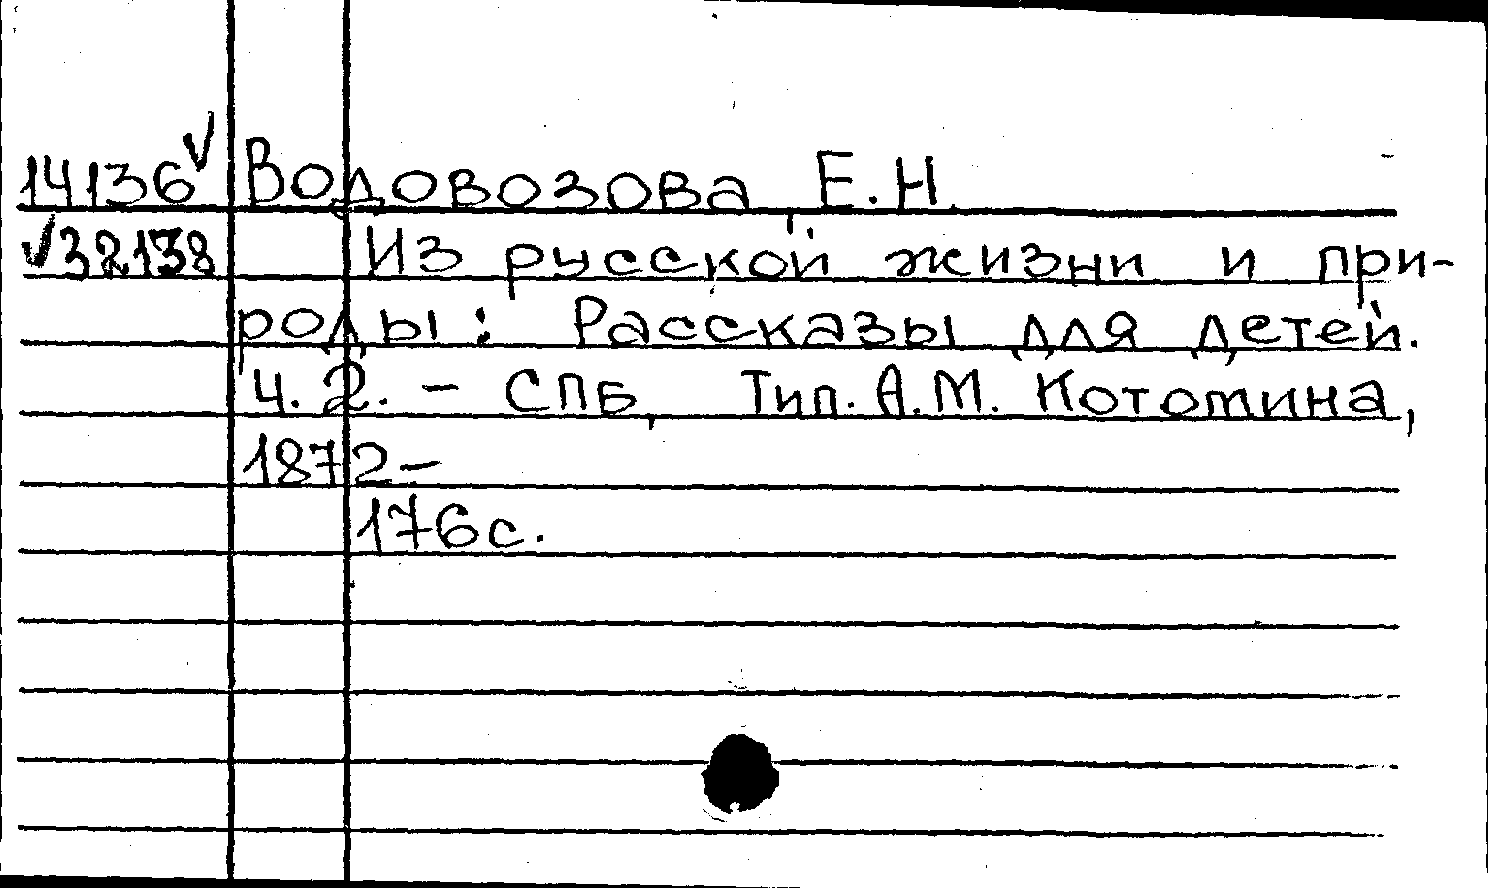 14136 √ Водовозова, Е.Н.
√ 32138 Из русской жизни и при-
роды: Рассказы для детей.
Ч. 2. – СПБ, Тип. А.М. Котомина,
1872–
176 с.